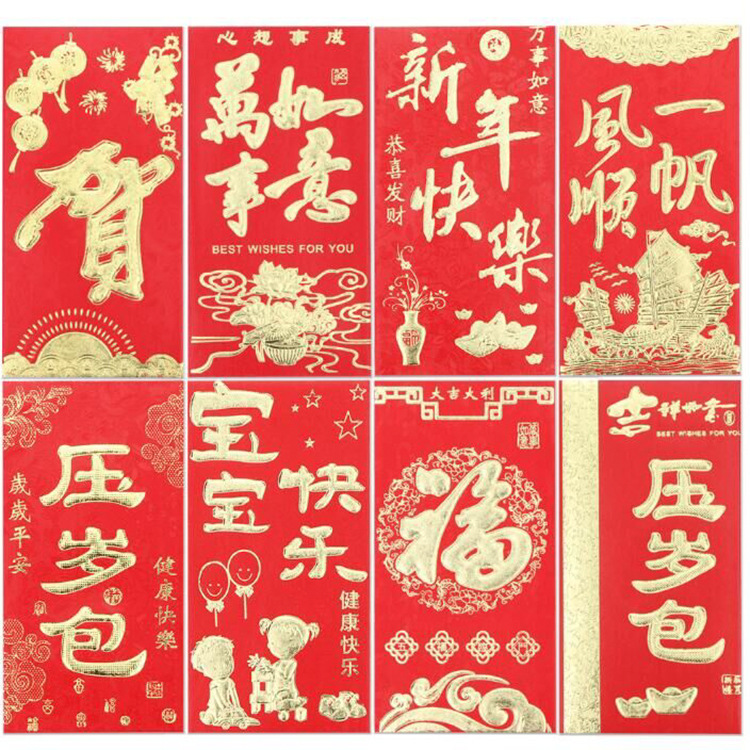 賀
心想事成
萬事
如意
BEST WISHES FOR YOU
新年
快樂
恭喜发财
万事如意
一帆
風順
压岁包
歲歲平安
健康快樂
宝宝
快乐
健康快乐
大吉大利
福
吉祥如意
BEST WISHES FOR YOU
压岁包